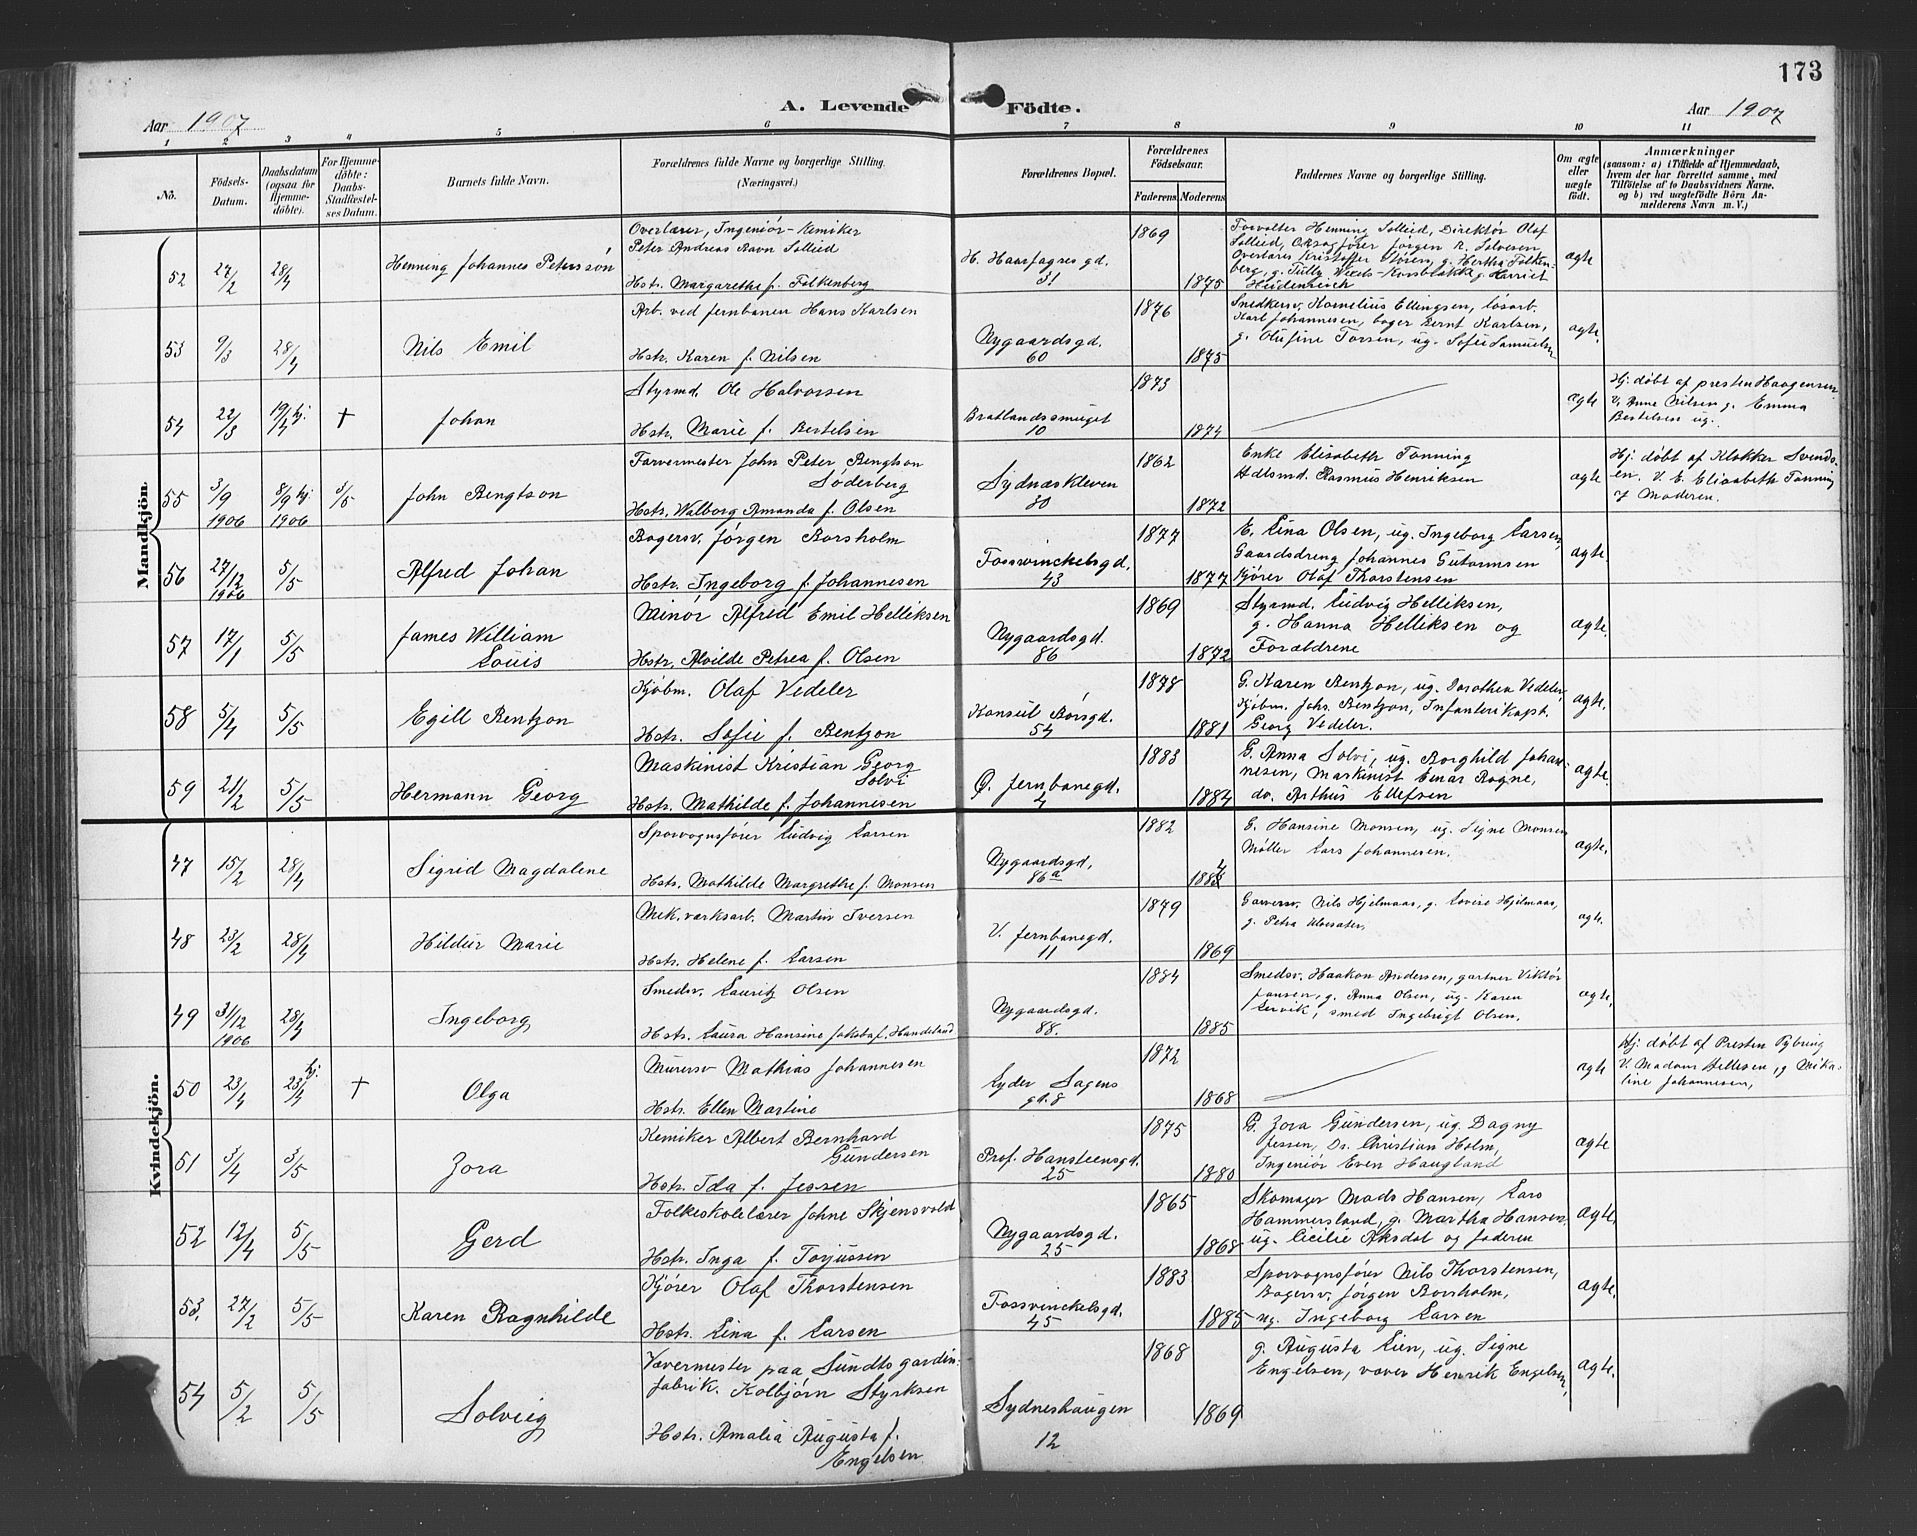 173
A. Levende Födte.
Aar 1907
Aar 1907
1 2 3 4 5 6 7 8 9 10 11
No.
Födsels-
Datum.
Daabsdatum
(ogsaa for
Hjemme-
döbte).
For Hjemme-
döbte:
Daabs-
Stadfæstel-
ses Datum.
Barnets fulde Navn.
Forældrenes fulde Navne og borgerlige Stilling.
(Næringsvei.)
Forældrenes Bopæl.
Forældrenes
Födselsaar.
Faderens Moderens
Faddernes Navne og borgerlige Stilling.
Om ægte
eller
uægte
födt.
Anmærkninger
(saasom: a) i Tilfælde af Hjemmedaab,
hvem der har forrettet samme, med
Tilföielse af to Daabsvidners Navne,
og b) ved uægtefödte Börn An-
melderens Navn m. V.)
Mandkjön
52
27/2
28/4
Henning Johannes Peterssön
Overlærer, Ingeniör-Kemiker
Peter Andreas Ravn Sollied
Hstr. Margarethe f. Falkenberg
H. Haarfagresgd.
31
1869
1875
Forvalter Henning Sollied, Direktör Olaf
Sollied, Overretssagförer Jörgen R. Solvesen
Overlærer Kristoffer Stören, g. Hertha Falken-
berg, g. Tully Weds-Korsblakke g. Harriet
Heidenreich
ægte
53
9/3
28/4
Nils Emil
Arb. ved Jernbanen Hans Karlsen
Hstr. Karen f. Nilsen
Nygaardsgd.
60
1876
1875
Snedkersv. Kornelius Ellingsen, lösarb.
Karl Johannesen, bager Bernt Karlsen,
g. Olufine Torsen, ug. Sofie Samuelsen
ægte.
54
22/3
19/4 hj.
†
Johan
Styrmd. Ole Halvorsen
Hstr. Marie f. Bertelsen
Bratlandssmuget
10
1873
1874
ægte
Hj: döbt af presten Haagensen
V. Anne Nilsen g. Emma
Bertelsen ug.
55
3/9
1906
8/9 hj.
1906
5/5
John Bengtson
Farvermester John Peter Bengtson
Söderberg
Hstr. Walborg Amanda f. Olsen
Sydnæskleven
30
1862
1872
Enke Elisabeth Tonning
Hdlsmd. Rasmus Henriksen
ægte
Hj: döbt af Klokker Svends-
en. V. E. Elisabeth Tonning
og Moderen.
56
27/12
1906
5/5
Alfred Johan
Bagersv. Jörgen Borsholm
Hstr. Ingeborg f. Johannesen
Fossvinckelsgd.
43
1877
1877
E. Lina Olsen, ug. Ingeborg Larsen,
Gaardsdreng Johannes Gutormsen
Kjörer Olaf Thorstensen
ægte.
57
17/1
5/5
James William
Louis
Minör Alfred Emil Helliksen
Hstr. Alvilde Petrea f. Olsen
Nygaardsgd.
86
1869
1872
Styrmd. Ludvig Helliksen,
g. Hanna Helliksen og
Forældrene
ægte.
58
5/4
5/5
Egill Bentzon
Kjöbm. Olaf Vedeler
Hstr. Sofie f. Bentzon
Konsul Börsgd.
54
1878
1881
G. Karen Bentzon, ug. Dorothea Vedeler,
Kjöbm. Johs. Bentzon, Infanterikapt.
Georg Vedeler.
ægte.
59
21/2
5/5
Hermann Georg
Maskinist Kristian Georg
Solvi
Hstr. Mathilde f. Johannesen
Ö. Jernbanegd.
4
1883
1884
G. Anna Solvi, ug. Borghild Johan-
nesen, Maskinist Einar Rogne,
do. Arthur Ellefsen
ægte.
Kvindekjön.
47
15/2
28/4
Sigrid Magdalene
Sporvognsförer Ludvig Larsen
Hstr. Mathilde Margrethe f. Monsen
Nygaardsgd.
86a
1882
1884
E. Hansine Monsen, ug. Signe Monsen
Möller Lars Johannesen.
ægte.
48
23/2
28/4
Hildur Marie
Mek. værksarb. Martin Iversen
Hstr. Helene f. Larsen
V. Jernbanegd.
11
1879
1869
Garversv. Nils Hjelmaas, g. Lovise Hjelmaas,
g. Petra Ulvesæter.
ægte.
49
31/12
1906
28/4
Ingeborg
Smedsv. Lauritz Olsen
Hstr. Laura Hansine Jakoba f. Handeland
Nygaardsgd.
88.
1884
1885
Smedsv. Haakon Andersen, gartner Viktor
Jansen, g. Anna Olsen, ug. Karen
Lervik, smed Ingebrigt Olsen.
ægte.
50
23/4
23/4 hj.
†
Olga
Murersv Mathias Johannesen
Hstr. Ellen Martine
Lyder Sagens
gd. 8
1872
1868
ægte
Hj: döbt af Presten Rybring
V. Madam Hellesen, g Mika-
line Johannesen,
51
3/4
3/5
Zora
Kemiker Albert Bernhard
Gundersen
Hstr. Ida f. Jessen
Prof. Hansteensgd.
25
1875
1880
G. Zora Gundersen, ug. Dagny
Jessen, Dr. Christian Holm,
Ingeniör Even Haugland
ægte
52
12/4
5/5
Gerd
Folkeskolelærer Johne Skjensvold
Hstr. Inga f. Torjussen
Nygaardsgd.
25
1865
1868
Skomager Mads Hansen, Lars
Hammersland, g. Martha Hansen,
ug. Cicilie Aksdal og Faderen
ægte.
53.
27/2
5/5
Karen Ragnhilde
Kjörer Olaf Thorstensen
Hstr. Lina f. Larsen
Fossvinckelsgd.
45
1883
1885
Sporvognsförer Nils Thorstensen,
Bagersv. Jörgen Borsholm,
ug. Ingeborg Larsen
ægte.
54
5/2
5/5
Solveig
Vævermester paa Sundts gardin-
fabrik. Kolbjörn Styrksen
Hstr. Amalia Augusta f.
Engelsen
Sydneshaugen
12
1868
1869
g. Augusta Lien, ug. Signe
Engelsen, væver Henrik Engelsen,
ægte.